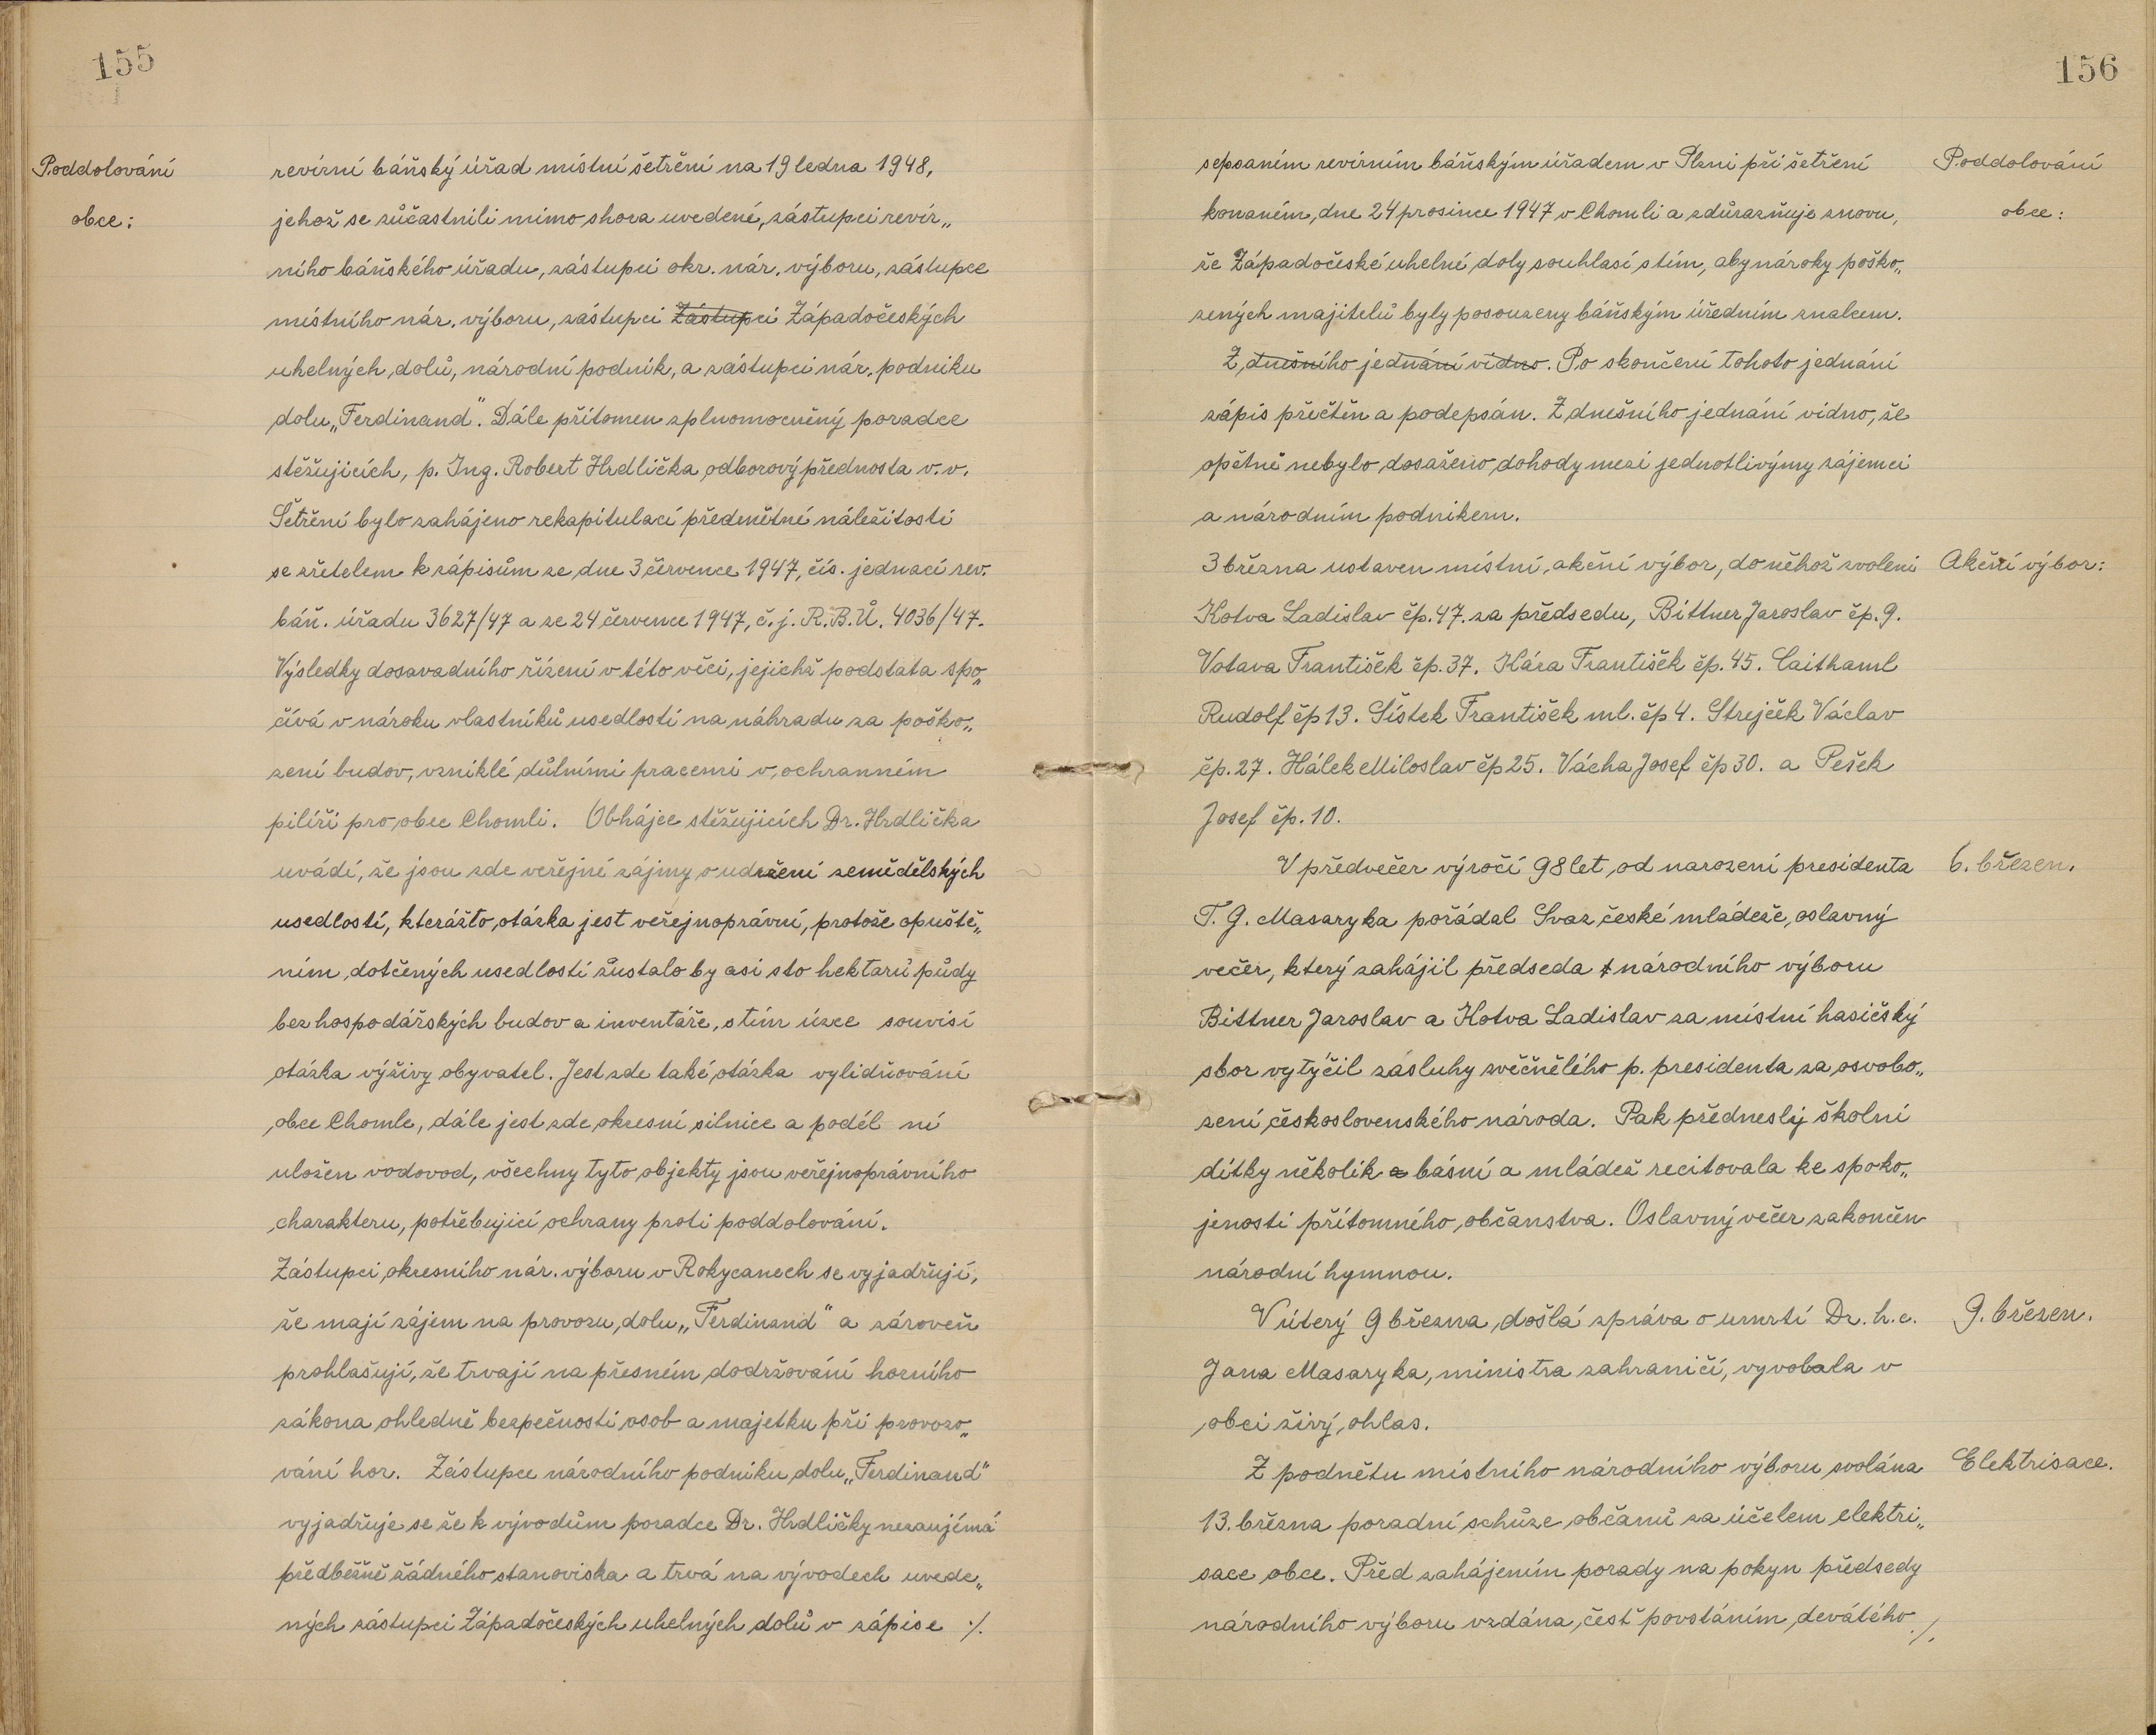 155
Poddolování
obce:
revírní báňský úřad místní šetření na 19 ledna 1948,
jehož se zůčastnili mimo shora uvedené, zástupci revír„
ního báňského úřadu, zástupci okr. nár. výboru, zástupce
místního nár. výboru, zástupci Zástupci Západočeských
uhelných dolů, národní podnik, a zástupci nár. podniku
dolu „Ferdinand". Dále přítomen zplnomocněný poradce
stěžujicích, p. Ing. Robert Hrdlička odborový přednosta v.v.
Šetření bylo zahájeno rekapitulací předmětné náležitosti
se zřetelem k zápisům ze dne 3 července 1947, čís. jednací rev.
báň. úřadu 3627/47 a ze 24 července 1947, č.j. R.B.Ú. 4036/47.
Výsledky dosavadního řízení v této věci, jejichž podstata spo„
čívá v nároku vlastníků usedlostí na náhradu za poško„
zení budov, vzniklé důlními pracemi v ochranném
pilíři pro obec Chomli. Obhájce stěžujicích Dr. Hrdlička
uvádí, že jsou zde veřejné zájmy o udržení zemědělských
usedlostí, kterážto otázka jest veřejnoprávní, protože opuště„
ním dotčených usedlostí zůstalo by asi sto hektarů půdy
bez hospodářských budov a inventáře, s tím úzce souvisí
otázka výživy obyvatel. Jest zde také otázka vylidňování
obce Chomle, dále jest zde okresní silnice a podél ní
uložen vodovod, všechny tyto objekty jsou veřejnoprávního
charakteru, potřebujicí ochrany proti poddolování.
Zástupci okresního nár. výboru v Rokycanech se vyjadřují,
že mají zájem na provozu dolu „Ferdinand" a zároveň
prohlašují, že trvají na přesném dodržování horního
zákona ohledně bezpečnosti osob a majetku při provozo„
vání hor. Zástupce národního podniku dolu „Ferdinand"
vyjadřuje se že k vývodům poradce Dr. Hrdličky nezaujímá
předběžně žádného stanoviska a trvá na vývodech uvede„
ných zástupci Západočeských uhelných dolů v zápise ./.
156
Poddolování
obce:
sepsaném revírním báňským úřadem v Plzni při šetření
konaném, dne 24 prosince 1947 v Chomli a zdůrazňuje znovu,
že Západočeské uhelné doly souhlasí s tím, aby nároky poško„
zených majitelů byly posouzeny báňským úředním znalcem.
Z dnešního jednání vidno. Po skončení tohoto jednání
zápis přečtěn a podepsán. Z dnešního jednání vidno, že
opětně nebylo dosaženo dohody mezi jednotlivýmy zájemci
a národním podnikem.
3 března ustaven místní akční výbor, do něhož zvoleni
Akční výbor:
Kotva Ladislav čp. 47. za předsedu, Bittner Jaroslav čp. 9.
Votava František čp. 37. Kára František čp. 45. Caithaml
Rudolf čp 13. Šístek František ml. čp 4. Strejček Václav
čp. 27. Hálek Miloslav čp 25. Vácha Josef čp 30. a Pešek
Josef čp. 10.
V předvečer výročí 98 let od narození presidenta
6. březen.
T. G. Masaryka pořádal Svaz české mládeže, oslavný
večer, který zahájil předseda národního výboru
Bittner Jaroslav a Kotva Ladislav za místní hasičský
sbor vytýčil zásluhy zvěčnělého p. presidenta za osvobo„
zení československého národa. Pak přednesly školní
dítky několik básní a mládež recitovala ke spoko„
jenosti přítomného občanstva. Oslavný večer zakončen
národní hymnou.
V úterý 9 března došlá zpráva o umrtí Dr. h.c.
9. březen.
Jana Masaryka, ministra zahraničí, vyvolala v
obci živý ohlas.
Z podnětu místního národního výboru svolána
Elektrisace.
13. března poradní schůze občanů za účelem elektri„
sace obce. Před zahájením porady na pokyn předsedy
národního výboru vzdána čest povstáním, devátého ./.